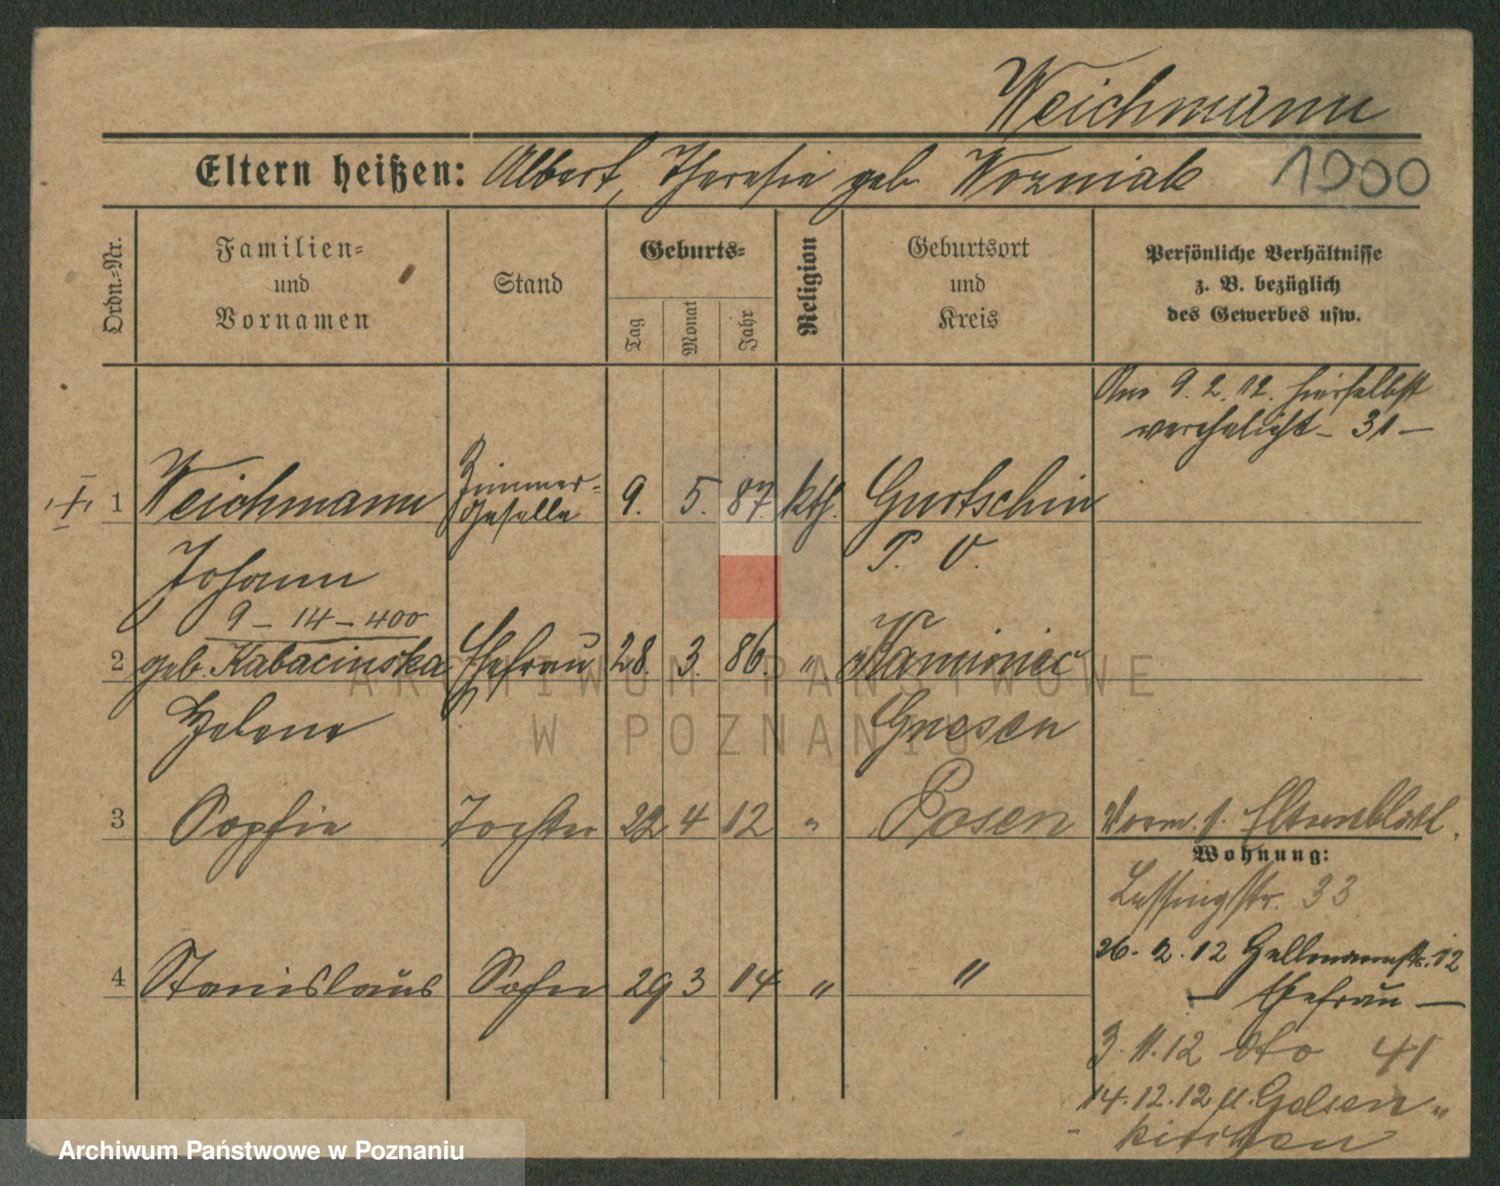 Weichmann
Eltern heißen: Albert, Theresie geb. Wozniak 1900
Ordn.-Nr.
Familien-
und
Vornamen
Stand
Geburts-
Tag
Monat
Jahr
Religion
Geburtsort
und
Kreis
Persönliche Verhältnisse
z. B. bezüglich
des Gewerbes usw.
Am 9.2.12. hierselbst
verehelicht - 31 -
1 Weichmann Zimmer- 9. 5. 87. kth. Gurtschin
Geselle
Johann P. O.
9 - 14 - 400
2 geb. Kabacinska Ehefrau 28. 3. 86. " Kamieniec
Helene Gnesen
3 Sophie Tochter 22 4 12 " Posen Verm. s. Elternblatt.
Wohnung:
Lessingstr. 33
4 Stanislaus Sohn 29 3 14 " "
26. 2. 12 12
— Ehefrau —
3. 11. 12 dto 41
14. 12. 12 n. Gelsen-
kirchen
ARCHIWUM PAŃSTWOWE
W POZNANIU
Archiwum Państwowe w Poznaniu